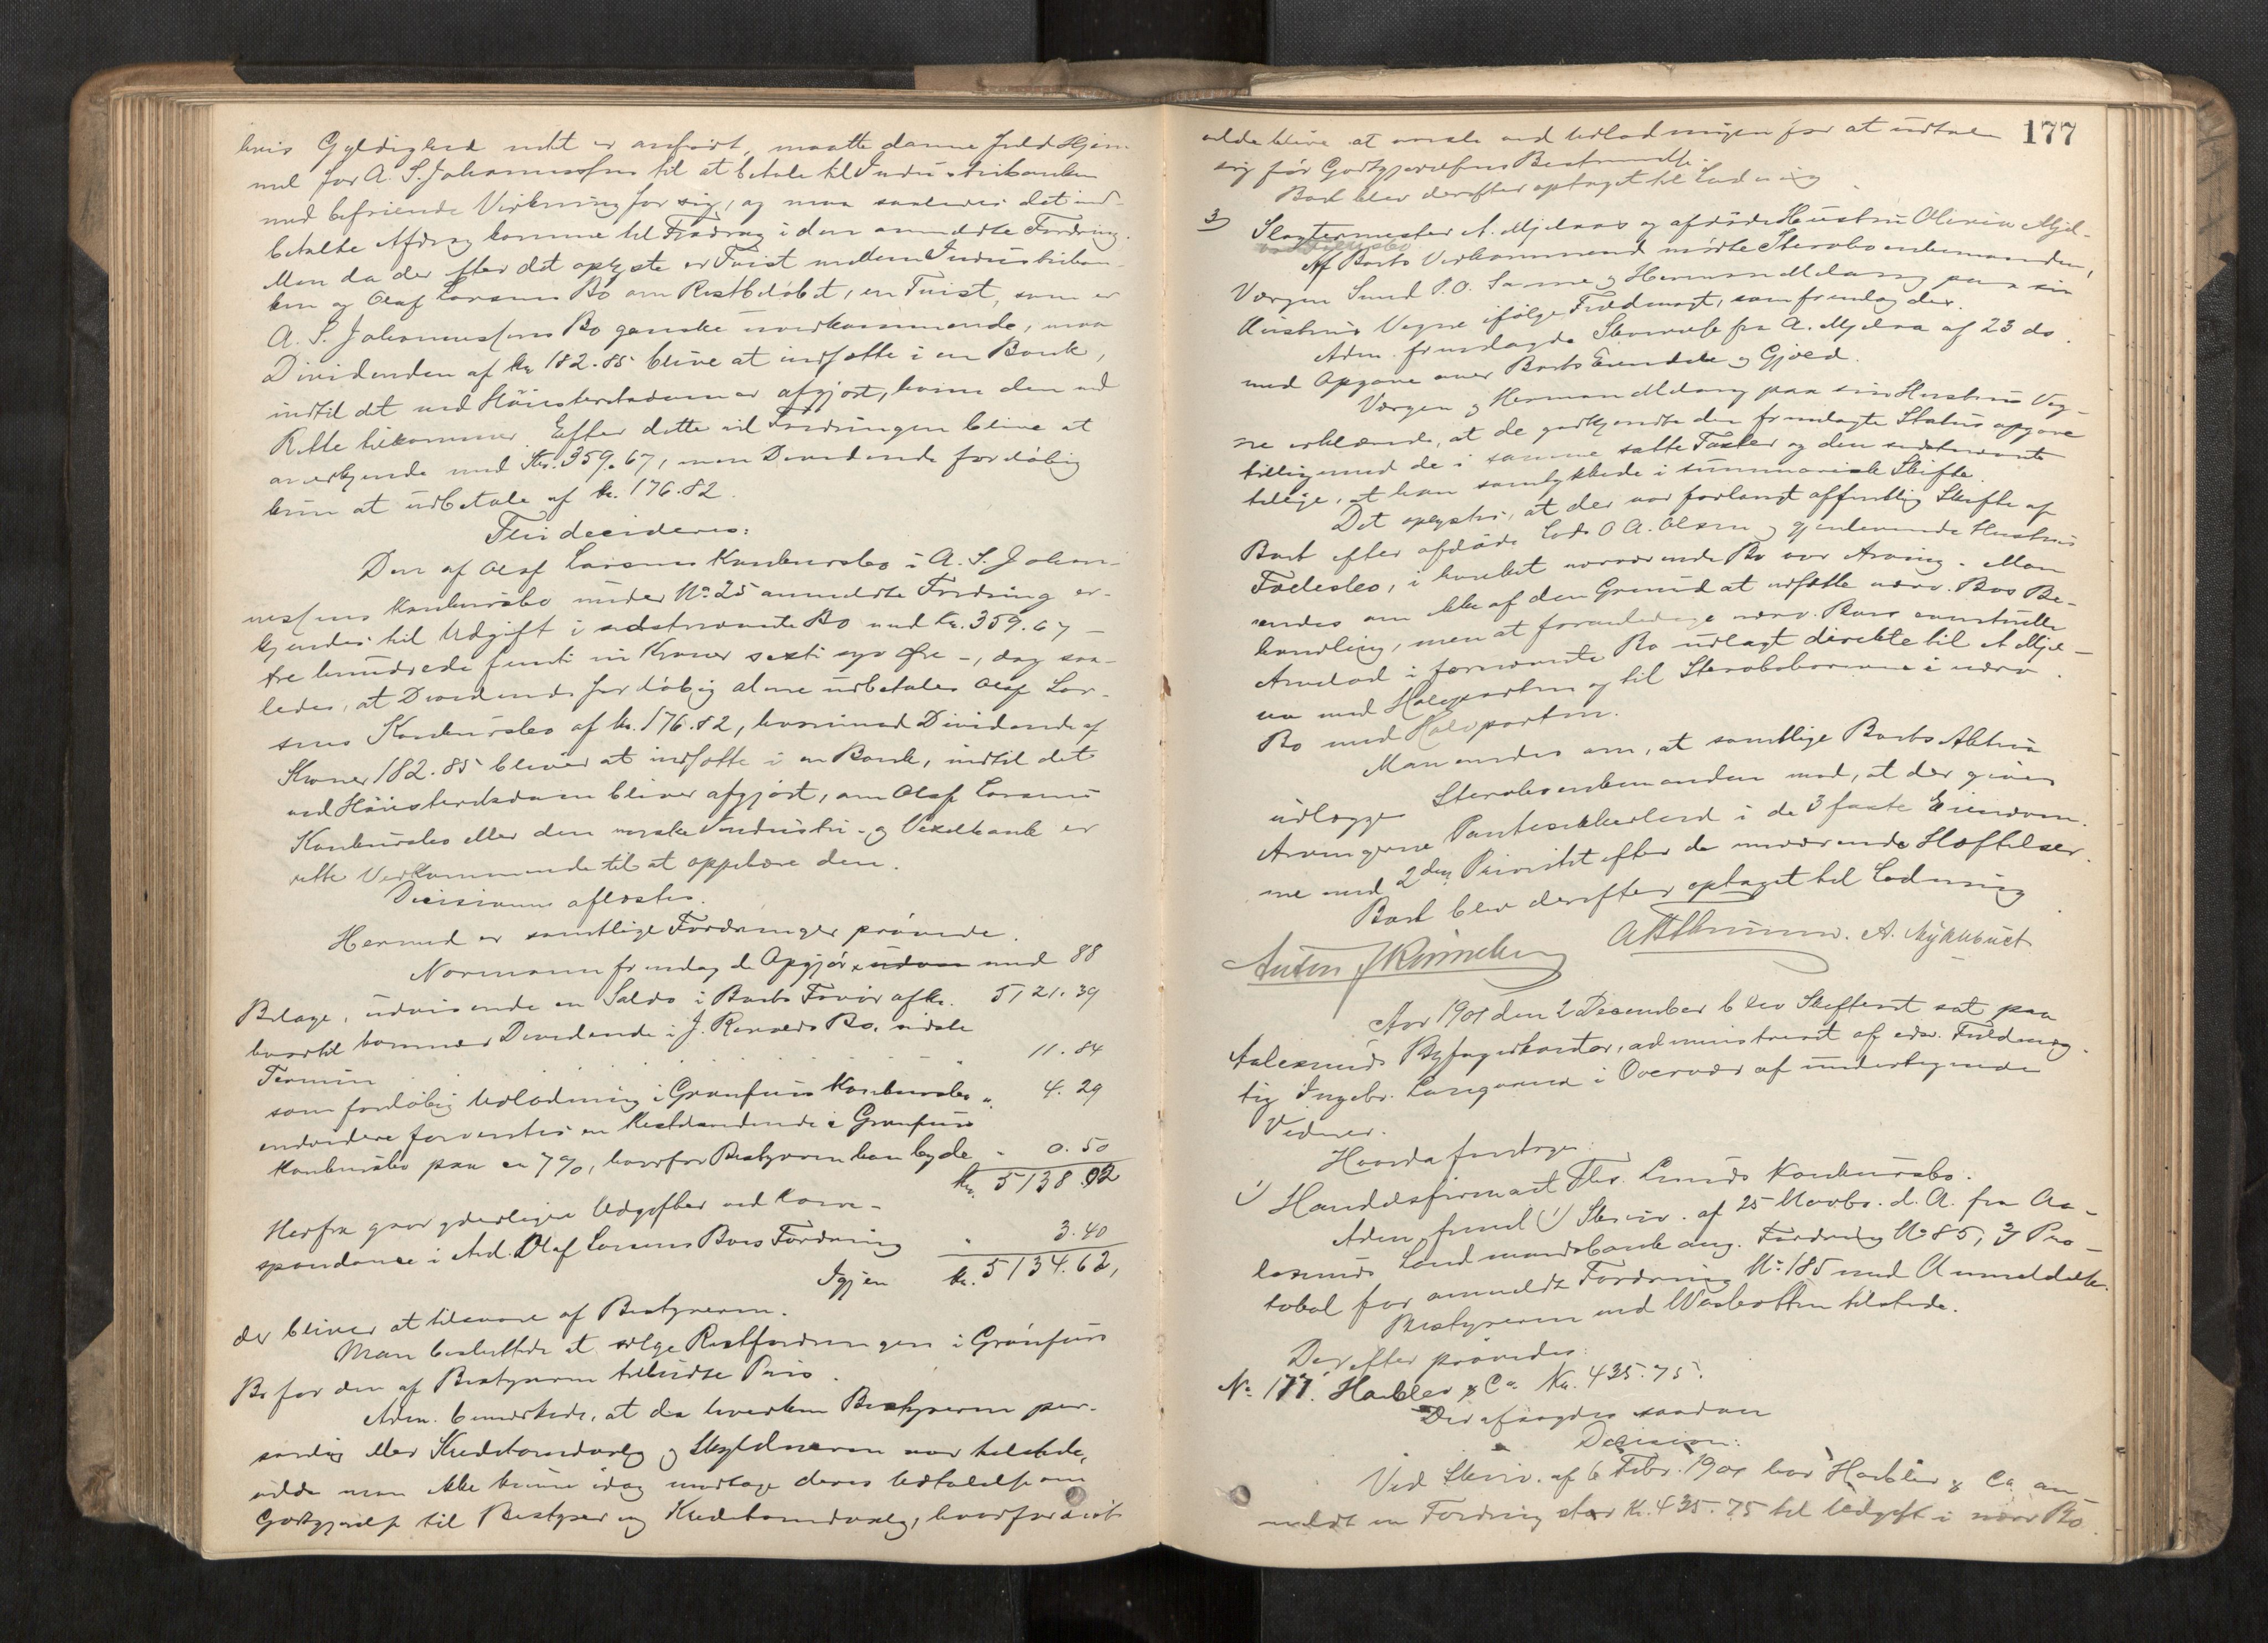 hvis Gyldighed intet er anført, maatte danne fuld Hjem-
mel for A. S. Johannessens til at betale til Industribanken
med befriende Virkning for sig, og maa saaledes det ind-
betalte Afdrag komme til Fradrag i den anmeldte Fordring.
Men da der efter det oplyste er Tvist mellem Industriban-
ken og Olaf Larsens Bo om Restbeløbet, en Tvist, som er
A. S. Johannessens Bo ganske uvedkommende, maa
Dividenden af kr 182.85 blive at indsætte i en Bank,
indtil det ved Høiesteretsdom er afgjort, hvem den med
Rette tilkommer. Efter dette vil Fordringen blive at
anerkjende med Kr. 359.67, men Dividende foreløbig
kun at udbetale af kr. 176.82.
Thi decideres:
Den af Olaf Larsens Konkursbo i A. S. Johan-
nessens Konkursbo under No 25 anmeldte Fordring er-
kjendes til Udgift i sidstnævnte Bo med Kr. 359.67 –
tre hundrede femti ni Kroner sexti syv Øre –, dog saa-
ledes, at Dividende foreløbig alene udbetales Olaf Lar-
sens Konkursbo af kr. 176.82, hvorimod Dividende af
Kroner 182.85 bliver at indsætte i en Bank, indtil det
ved Høiesteretsdom bliver afgjort, om Olaf Larsens
Konkursbo eller den norske Industri- og Vexelbank er
rette Vedkommende til at oppebære den.
Decisionen aflæstes.
Hermed er samtlige Fordringer prøvede.
Normann fremlagde Opgjør, udvi med 88
Bilage, udvisende en Saldo i Boets Favør af kr. 5121.39
hvortil kommer Dividende i J. Rem Bo, sidste
Termin " 11.84
som foreløbig Udlodning i Grønfurs Konkursbo " 4.29
endvidere forventes en Restdividende i Grønfurs
Konkursbo paa ca 7%, hvorfor Bestyreren kan byde " 0.50
kr. 5138.02
Herfra gaar yderligere Udgifter ved Korre-
spondance i Anl. Olaf Larsens Boes Fordring " 3.40
Igjen kr. 5134.62,
der bliver at tilsvare af Bestyreren.
Man besluttede at sælge Restfordringen i Grønfurs
Bo for den af Bestyreren tilbudte Pris.
Adm. bemærkede, at da hverken Bestyreren per-
sonlig eller Kreditorudvalg og Skyldneren var tilstede,
vilde man ikke kunne idag modtage deres Udtalelse om
Godtgjørelse til Bestyrer og Kreditorudvalg, hvorfor disse
177
vilde blive at varsle ved Udlodningen for at udtale
sig før Godtgjørelsens Bestemmelse.
Boet blev derefter optaget til Lodning.
3) Slagtermester A. Mjelvaas og afdøde Hustru Olivia Mjel-
Af Boets Vedkommende mødte Stervboenkemanden,
Værgen Svend P. O. Sanne og Herman Meldang paa sin
Hustrus Vegne ifølge Fuldmagt, som fremlagdes.
Adm. fremlagde Skrivelse fra A. Mjelva af 23 ds.
med Opgave over Boets Eiendele og Gjæld.
Værgen og Herman Meldang paa sin Hustrus Veg-
ne erklærede, at de godkjendte den fremlagte Status opgave
tilligemed de i samme satte Taxter og den sidstnævnte
tillige, at han samtykkede i summarisk Skifte.
Det oplystes, at der var forlangt offentlig Skifte af
Boet efter afdøde Lods O. A. Olsen og gjenlevende Hustrus
Fællesbo, i hvilket nærværende Bo var Arving. Man
enedes om ikke af den Grund at udsætte nærv. Bos Be-
handling, men at foranledige nærv. Boes eventuelle
Arvelod i førnævnte Bo udlagt direkte til A. Mjel-
va med Halvparten og til Stervboarvingerne i nærv.
Bo med Halvparten.
Man enedes om, at samtlige Boets Aktiva
udlægges Stervboenkemanden mod, at der gives
Arvingerne Pantesikkerhed i de 3 faste Eiendom-
me med 2den Prioritet efter de nuværende Hæftelser.
Boet blev derefter optaget til Lodning.
Anton J Rønneberg A. Nykkebust
Aar 1901 den 2 December blev Skifteret sat paa
Aalesunds Byfogedkontor, administreret af edsv. Fuldmæg-
tig Ingebr. Langaard i Overvær af undertegnede
Vidner.
Hvorda foretoges:
1) Handelsfirmaet Thr. Lunds Konkursbo.
Adm. freml. 1) Skriv. af 25 Novbr. d. A. fra Aa-
lesunds Landmandsbank ang. Fordring No 85, 2) Pro-
tokol for anmeldt Fordring No 185 med Anmeldelse.
Bestyreren ved Wasbotten tilstede.
Derefter prøvedes:
No 177. Hackler & Co Kr. 435.75.
Der afsagdes saadan
Decision:
Ved Skriv. af 6 Febr. 1901 har Hackler & Co an-
meldt en Fordring stor kr. 435.75 til Udgift i nærv. Bo.